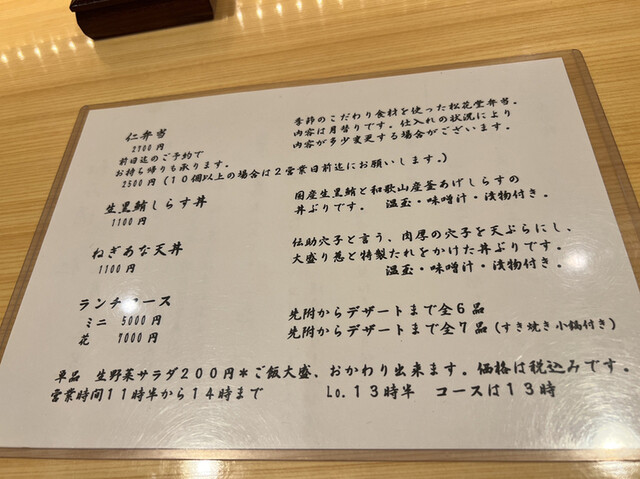 仁弁当
2700円
季節のこだわり食材を使った松花堂弁当。
内容は月替りです。仕入れの状況により
内容が多少変更する場合がございます。
前日迄のご予約で
お持ち帰りも承ります。
2500円(10個以上の場合は2営業日前迄にお願いします。)
生黒鮪しらす丼
1100円
国産生黒鮪と和歌山産釜あげしらすの
丼ぶりです。 温玉・味噌汁・漬物付き。
ねぎあな天丼
1100円
伝助穴子と言う、肉厚の穴子を天ぷらにし、
大盛り葱と特製たれをかけた丼ぶりです。
温玉・味噌汁・漬物付き。
ランチコース
ミニ 5000円
先附からデザートまで全6品
花 7000円
先附からデザートまで全7品(すき焼き小鍋付き)
単品 生野菜サラダ200円*ご飯大盛、おかわり出来ます。価格は税込みです。
営業時間11時半から14時まで Lo.13時半 コースは13時